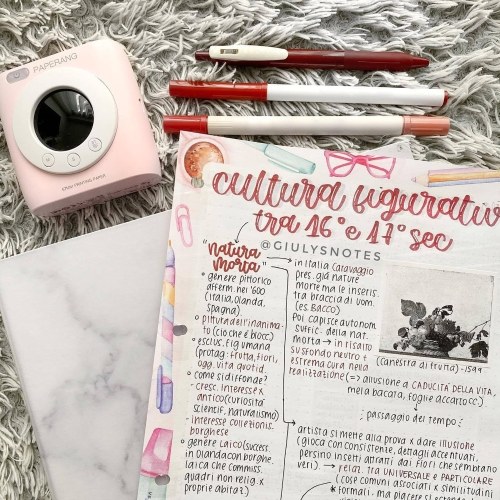 PAPERANG
cultura figurativa
tra 16° e 17° sec
@GIULYSNOTES
"natura
morta"
° genere pittorico
afferm. nel '600
(Italia, Olanda,
Spagna)
° pittura dell'inanima-
to (ciò che è blocc.)
° esclus. fig umana
(protag: frutta, fiori,
ogg. vita quotid.
° come si diffonde?
- cresc. interesse x
antico (curiosità
scientif., naturalismo)
- interesse collezionis.
borghese
° genere laico (success.
in Olanda con borghe.
laica che commiss.
quadri non relig x
proprie abitaz.)
in Italia Caravaggio
pres. già nature
morte ma le inseris.
tra braccia di uom.
(es. Bacco)
Poi capisce autonom.
suffic. della nat.
morta → in risalto
su sfondo neutro +
estrema cura nella
realizzazione (=> allusione a CADUCITÀ DELLA VITA,
mela bacata, foglie accartocc.)
(canestra di frutta) - 1599
passaggio del tempo
artista si mette alla prova x dare illusione
(gioca con consistenze, dettagli accentuati,
persino insetti attratti dai fiori che sembrano
veri). → relaz. tra UNIVERSALE e PARTICOLARE
(cose comuni associati x similitud
* formati, ma